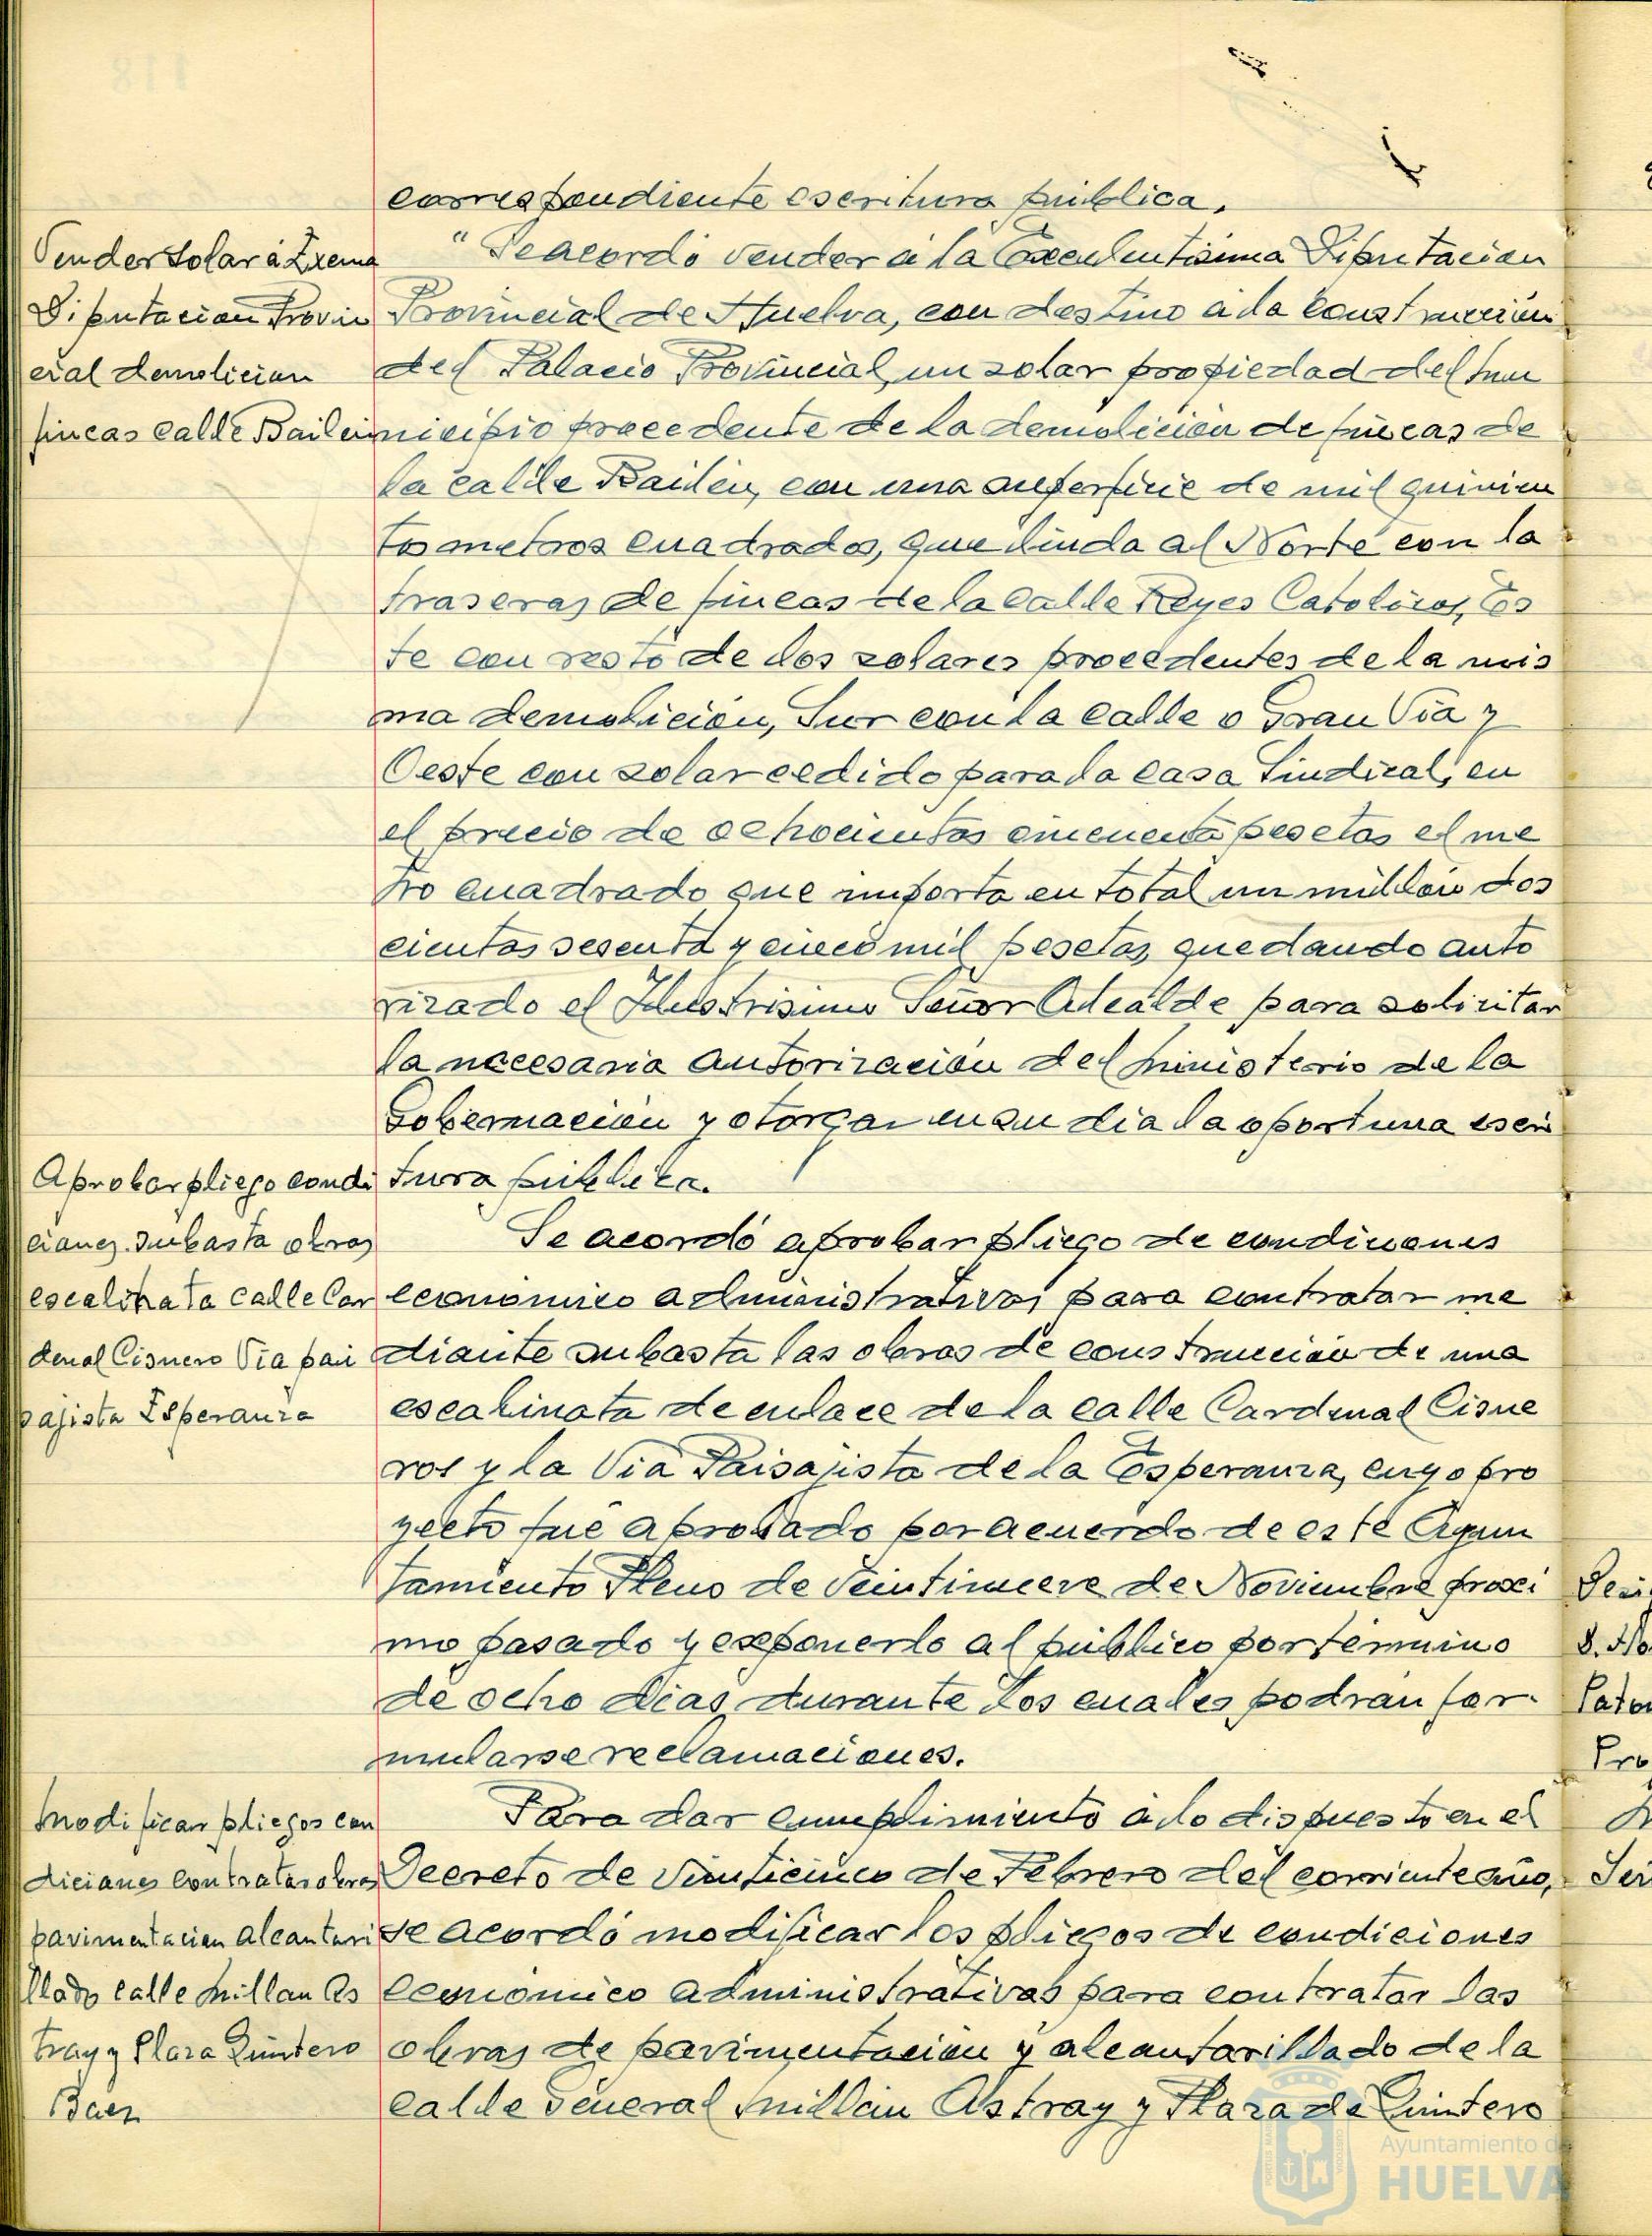 correspondiente escritura pública.
Vender solar á Exema
Diputacion Provin
cial demolicion
fincas calle Bailén
" Se acordó vender a la Excelentisima Diputacion
Provincial de Huelva, con destino a la construcción
del Palacio Provincial, un solar propiedad del mu
nicipio procedente de la demolición de fincas de
la calle Bailén, con una superficie de mil quinien
tos metros cuadrados, que linda al Norte con la
traseras de fincas de la calle Reyes Catolicos, Es
te con resto de los solares procedentes de la mis
ma demolición, Sur con la calle o Gran Via y
Oeste con solar cedido para la casa Sindical, en
el precio de ochocientos cincuenta pesetas el me
tro cuadrado que importa en total un millón dos
cientos sesenta y cinco mil pesetas, quedando auto
rizado el Ilustrisimo Señor Alcalde para solicitar
la necesaria autorización del ministerio de la
Gobernación y otorgar en su dia la oportuna escri
tura pública.
Aprobar pliego condi
ciones subasta obras
escalinata calle Car
denal Cisnero Via pai
pajista Esperanza
Se acordó aprobar pliego de condiciones
economico administrativas para contratar me
diante subasta las obras de construcción de una
escalinata de enlace de la calle Cardenal Cisne
ros y la Via Paisajista de la Esperanza, cuyo pro
yecto fué aprobado por acuerdo de este Ayun
tamiento Pleno de veintinueve de Noviembre proxi
mo pasado y exponerlo al público por término
de ocho dias durante los cuales podrán for-
mularse reclamaciones.
Modificar pliegos con
diciones contratar obras
pavimentacion alcantari
llado calle Millan As
tray y Plaza Quintero
Baez
Para dar cumplimiento a lo dispuesto en el
Decreto de veinticinco de Febrero del corriente año,
se acordó modificar los pliegos de condiciones
económico administrativas para contratar las
obras de pavimentación y alcantarillado de la
calle General Millán Astray y Plaza de Quintero
Ayuntamiento de
HUELVA